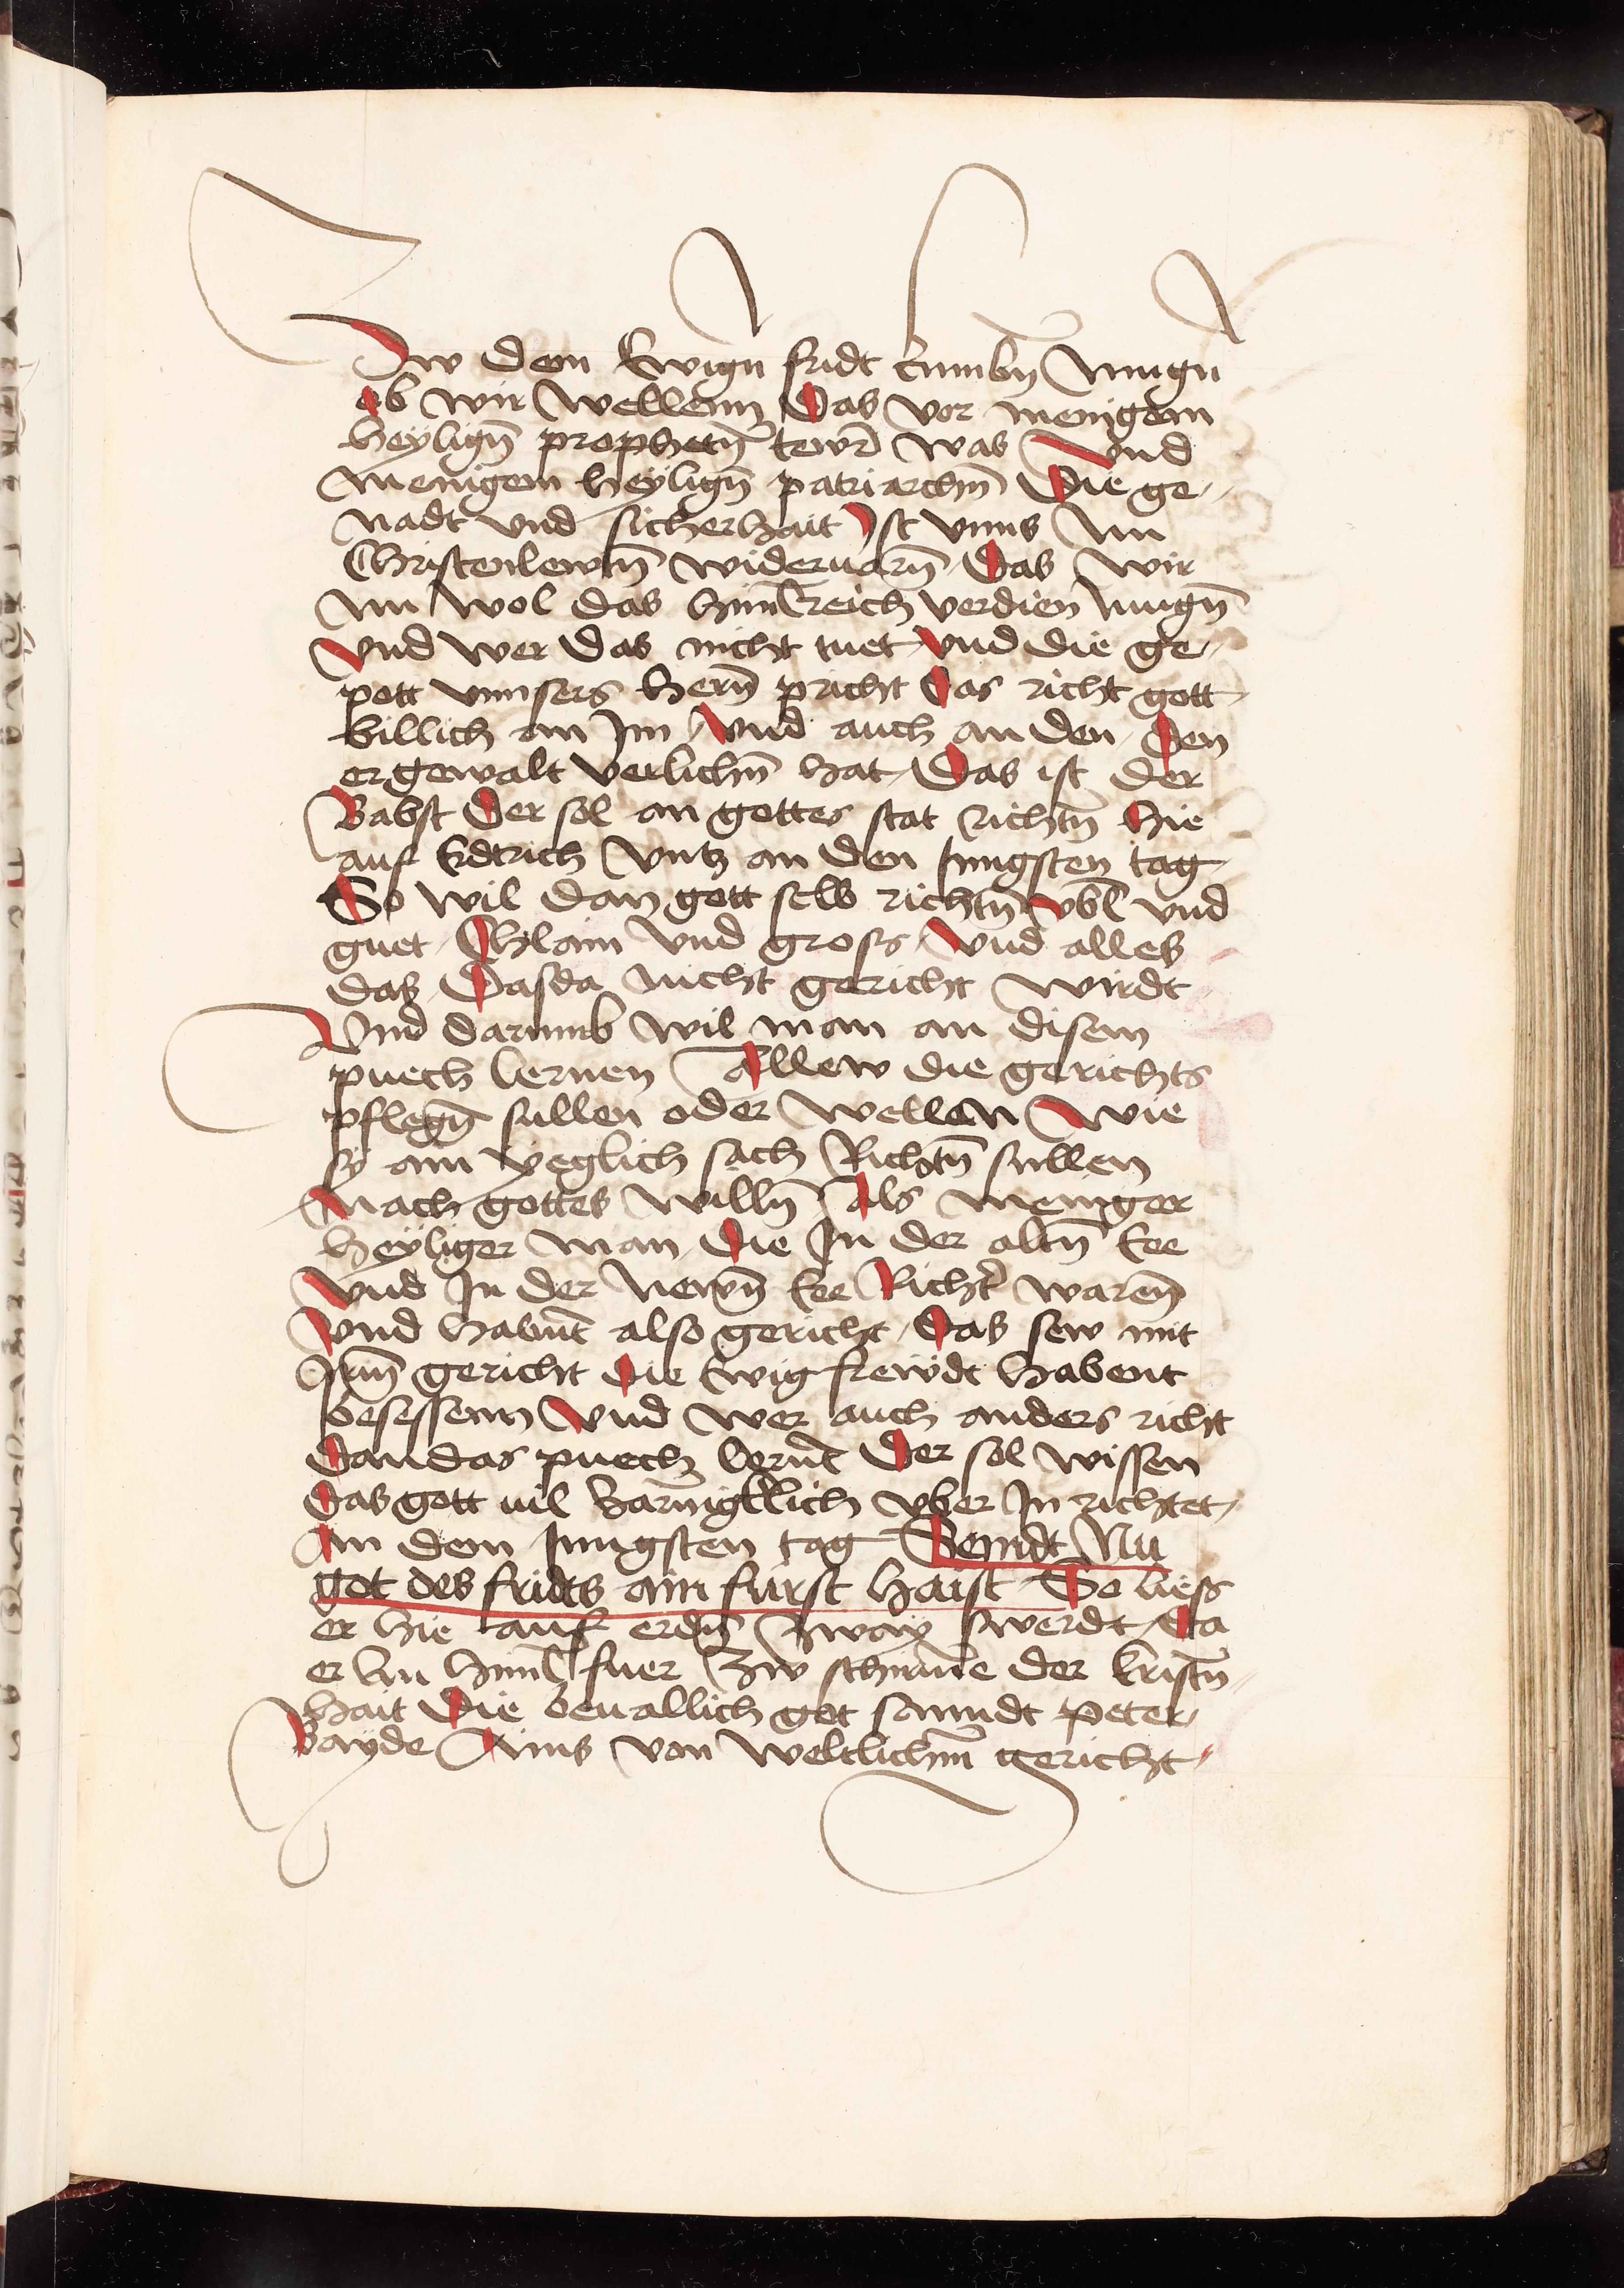 Zw dem Ewign̄ fridt kumbn̄ Mugn̄
ob wir wellenn Das vor menigem
heylign̄ prophetn̄ tewr̄ was Vnd
Menigem heylign̄ patriarchn̄ Die ge⸗
nadt vnd sicherhait Ist vnns Nu
Christenlewtn̄ wideruarn̄ Das wir
Nu wol das himlreich verdien mugn̄
Vnd wer das nicht tuet Vnd die ge⸗
pott vnnsers hern̄ pricht Das richt gott
billich an Im Vnd auch an den Den
er gewalt verlichn̄ hat Das ist der
Babst Der sol an gottes stat richtn̄ hie
auf Erdtrich Vntz an den Jungsten tag
So wil dan gott selb richtn̄ vbl vnd
guet Chlain vnd gross Vnd alles
das Das da nicht gericht wirdt
Vnd darumb wil man an disem
puech lernen Allew die gerichts
pflegn̄ sullen oder wellen Wie
sy ain yeglich sach Richtn̄ sullen
Nach gottes willn̄ Als meniger
heyliger man Die In der altn̄ Eee
Vnd In der Newn̄ Eee Richt̄ warenn̄
Vnd habnt also gericht Das sew mit
Irm̄ gericht Die Ewig freẅdt habent
besessenn Vnd wer auch anders richt
Dan das puech lernt̄ Der sol wissen
Das gott uil Zarnigklich vber In richtet
An dem Jungsten tag Seindt Nu
got des fridts ain fürst haist So liess
er hie auf erdn̄ Zway swerdt Da
er Inn himl fuer Zw schirme der kristn̄⸗
hait Die beuallich got sanndt peter
Bayde Ains von weltlichm̄ gericht